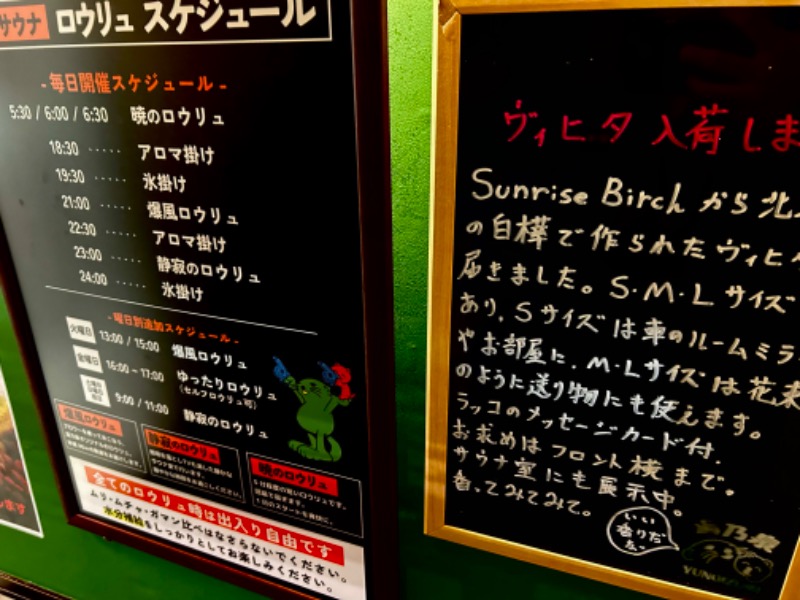 サウナ ロウリュ スケジュール
- 毎日開催スケジュール -
5:30 / 6:00 / 6:30 暁のロウリュ
18:30 ····· アロマ掛け
19:30 ····· 氷掛け
21:00 ····· 爆風ロウリュ
22:30 ····· アロマ掛け
23:00 ····· 静寂のロウリュ
24:00 ····· 氷掛け
- 曜日別追加スケジュール -
火曜日 13:00 / 15:00 爆風ロウリュ
金曜日 16:00 ~ 17:00 ゆったりロウリュ
(セルフロウリュ可)
土曜日 日曜日 祝日 9:00 / 11:00 静寂のロウリュ
爆風のロウリュ
静寂のロウリュ
暁のロウリュ
全てのロウリュ時は出入り自由です
ムリ・ムチャ・ガマン比べはなさらないでください。
水分補給をしっかりとしてお楽しみください。
します
ヴィヒタ 入荷しま
Sunrise Birch から北
の白樺で作られたヴィヒ
届きました。S・M・Lサイズ
あり、Sサイズは車のルームミラ
やお部屋に、M・Lサイズは花束
のように送り物にも使えます。
ラッコのメッセージカード付.
お求めはフロント横まで。
サウナ室にも展示中。
香ってみてみて。
いい
香りだ
ぶ